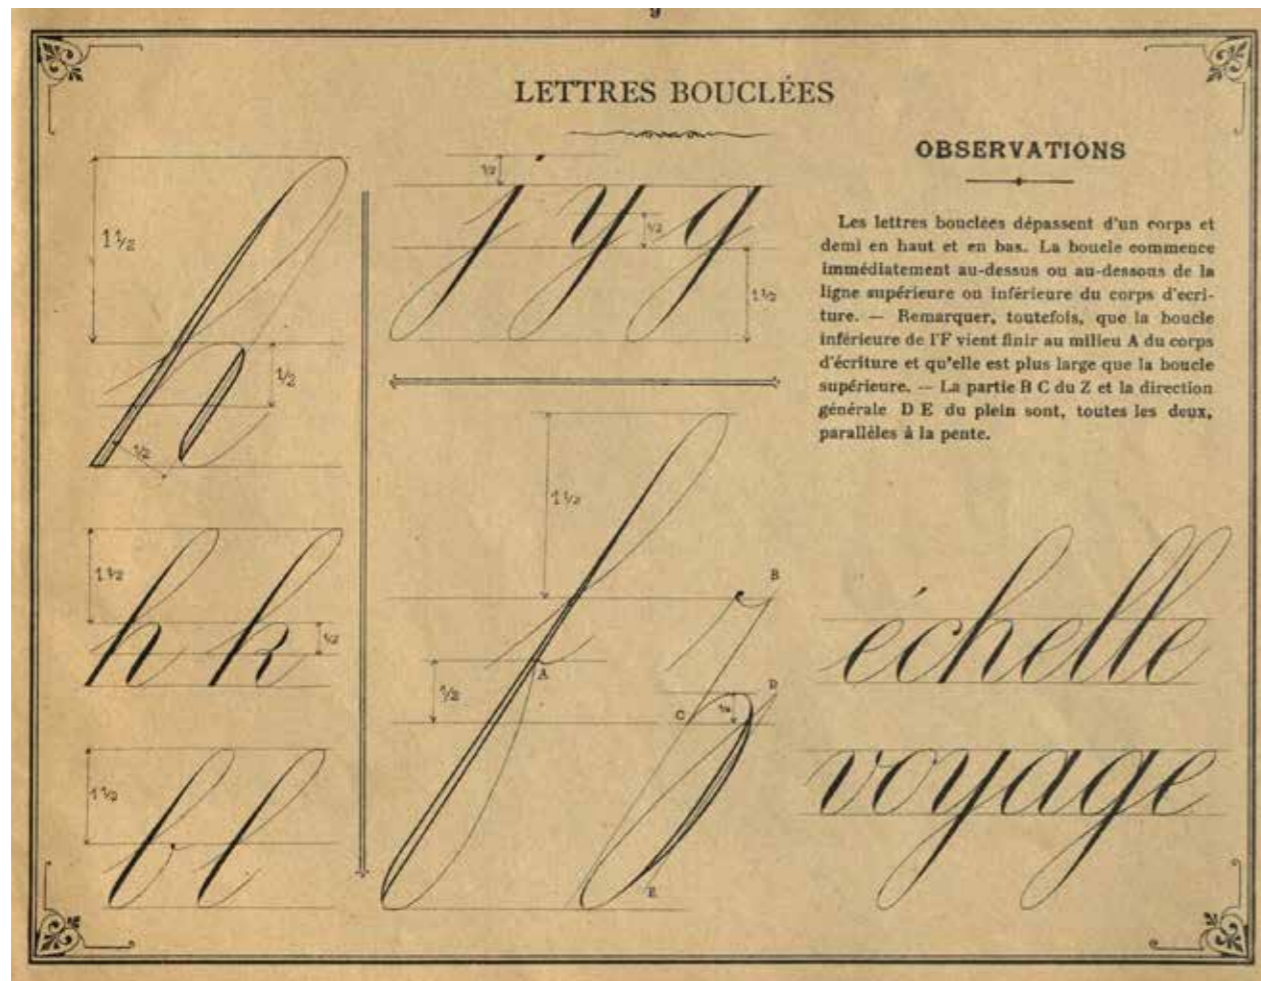 9
LETTRES BOUCLÉES
OBSERVATIONS
Les lettres bouclées dépassent d'un corps et
demi en haut et en bas. La boucle commence
immédiatement au-dessus ou au-dessous de la
ligne supérieure ou inférieure du corps d'écri-
ture. — Remarquer, toutefois, que la boucle
inférieure de l'F vient finir au milieu A du corps
d'écriture et qu'elle est plus large que la boucle
supérieure. — La partie B C du Z et la direction
générale D E du plein sont, toutes les deux,
parallèles à la pente.
1 1/2
h
1/2
1/2
1 1/2
h k
1/2
1 1/2
b l
1/2
j y g
1/2
1 1/2
1 1/2
f z
A
1/2
B
C
D
1/2
E
échelle
voyage